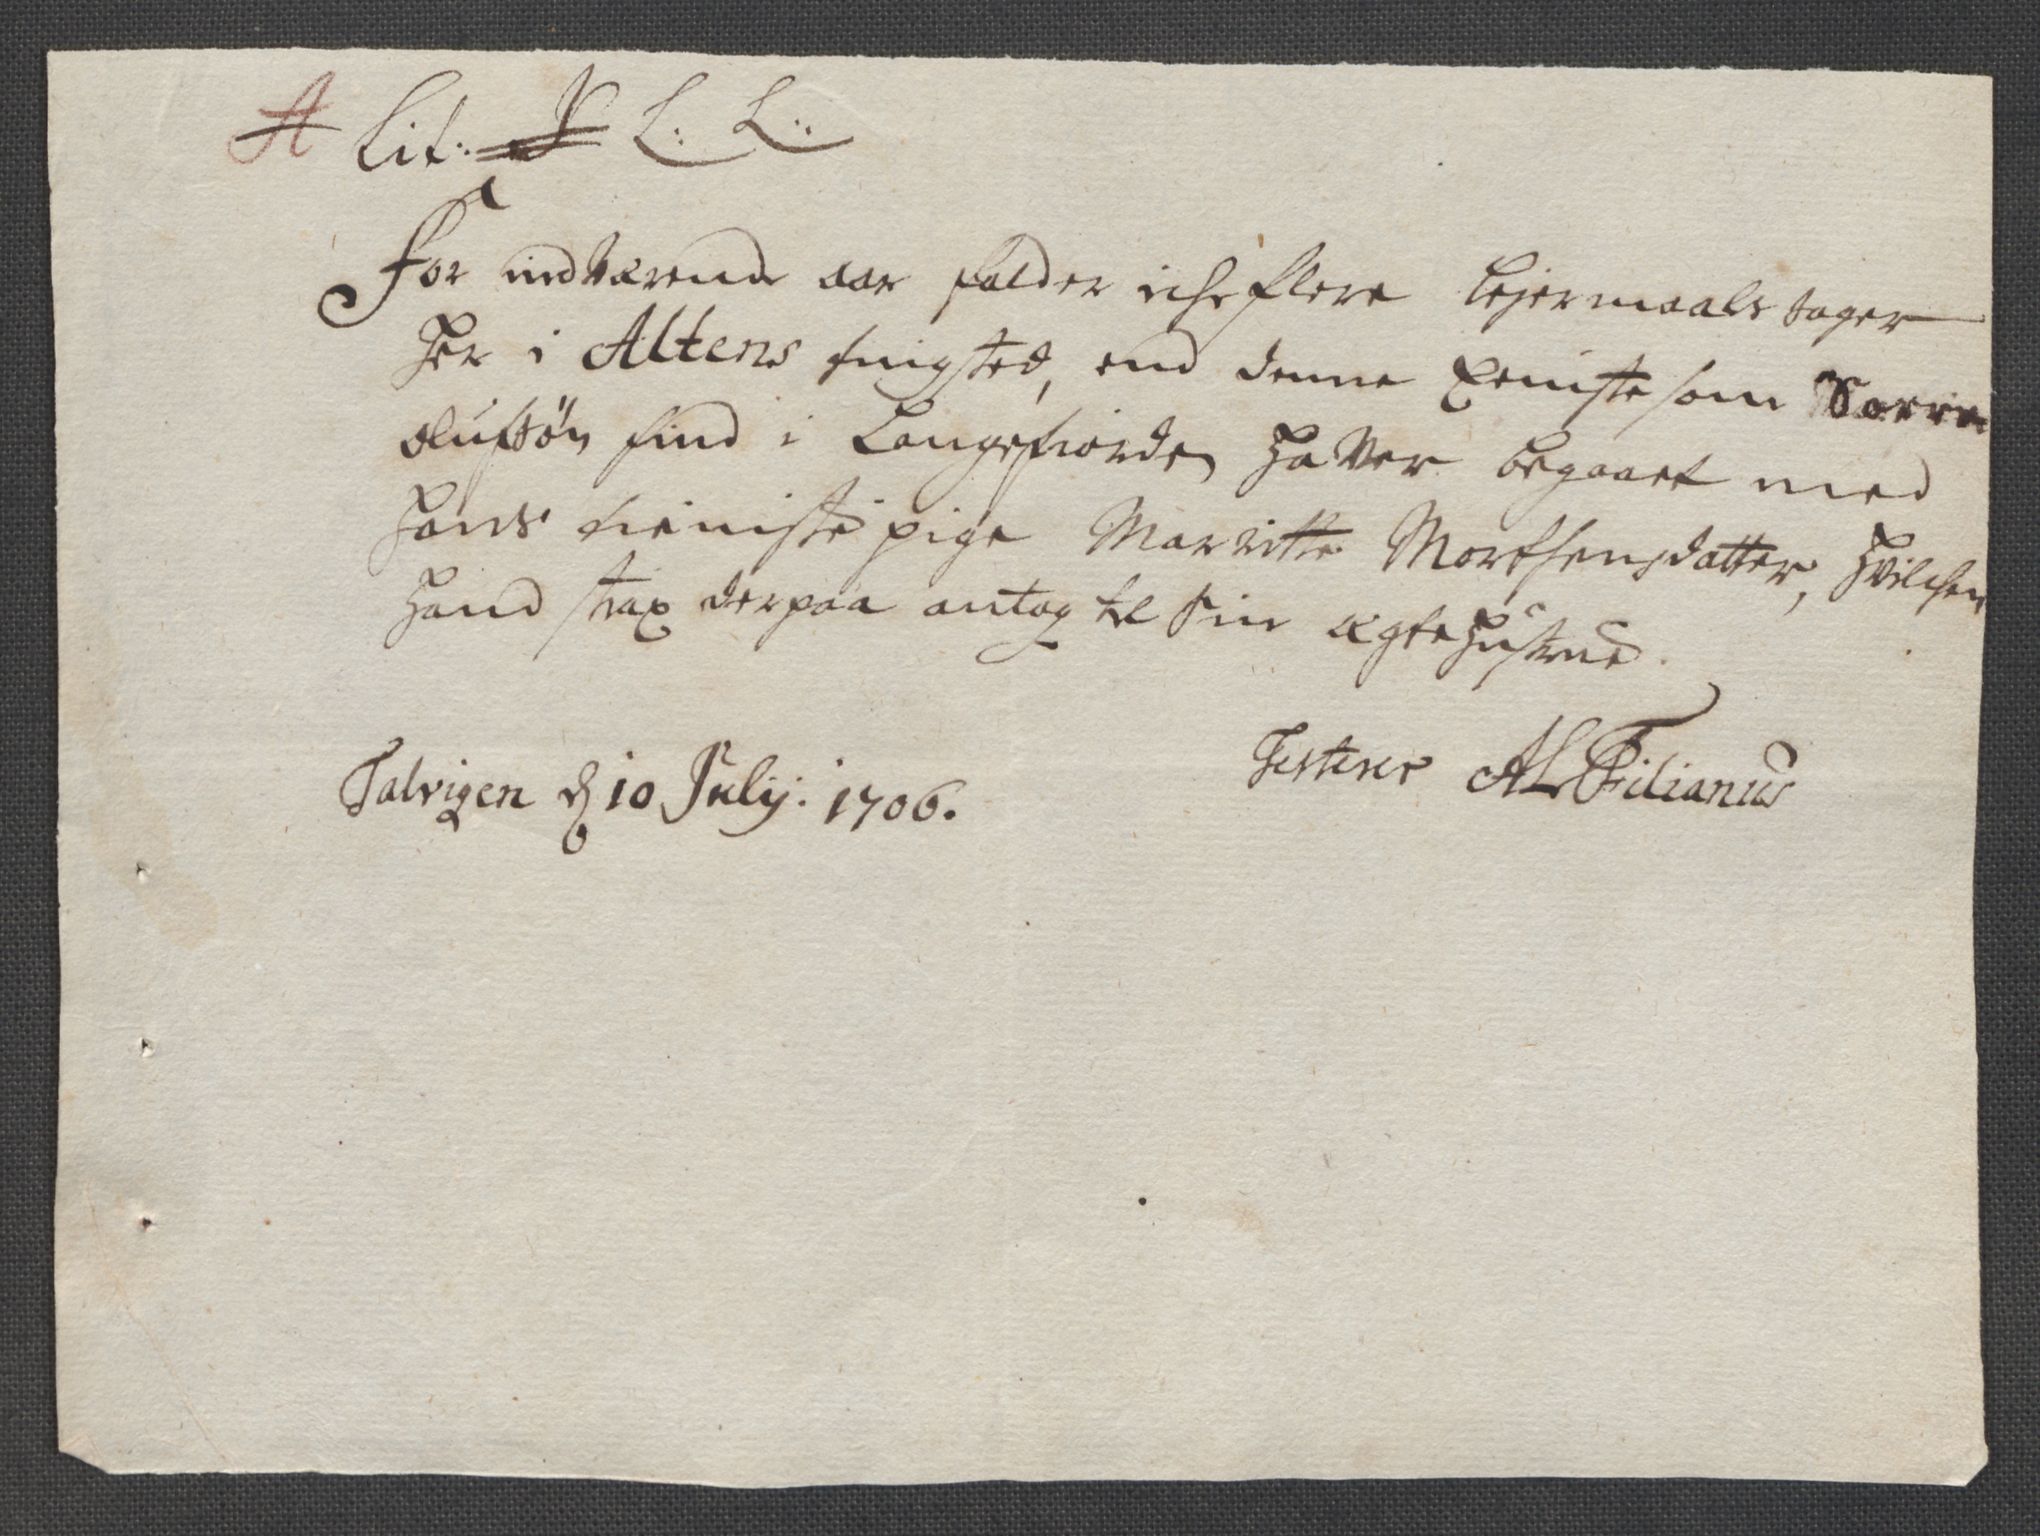 A Lit: L: L:
For indværende aar falder iche flere Lejermaals sager
her i Altens tingsted, end denne Eeniste som
olufsøn find i Langefiorden haver begaaet med
hans tieniste pige Marritte Morthensdatter, hvilchen
hand strax derpaa antog til sin ægtehustrue.
Talvigen d 10 Julij: 1706.
Testerer AL Filianus